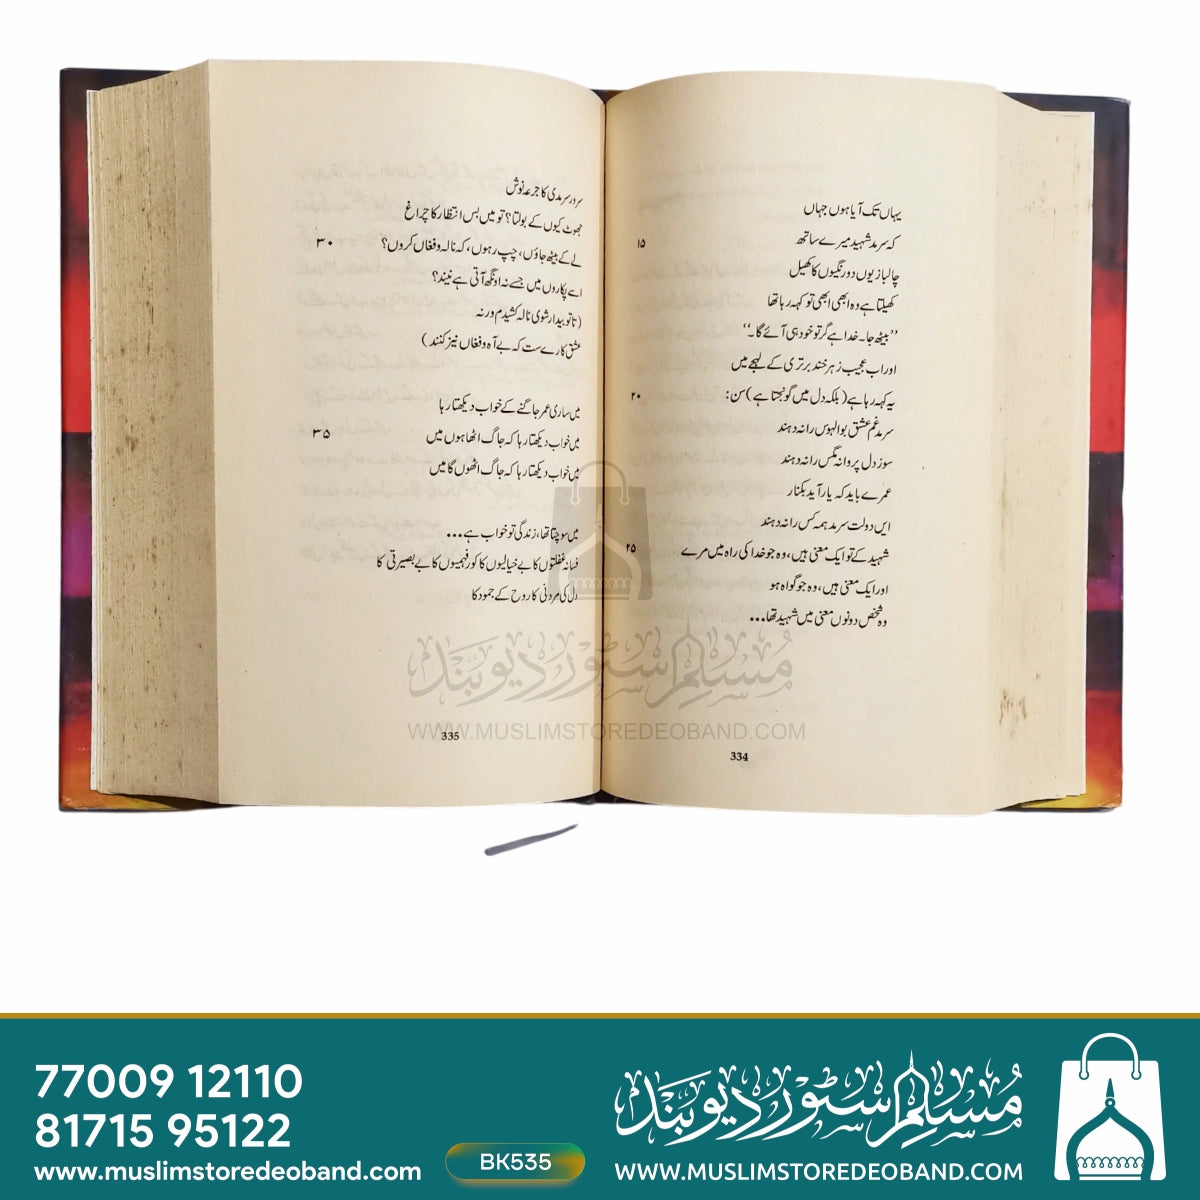 یہاں تک آیا ہوں جہاں
کہ سرمد شہید میرے ساتھ
۱۵
چالبازیوں دورنگیوں کا کھیل
کھیلتا ہے وہ ابھی ابھی تو کہہ رہا تھا
’’بیٹھ جا۔ خدا ہے گر تو خود ہی آئے گا۔‘‘
اور اب عجیب زہر خند برتری کے لہجے میں
یہ کہہ رہا ہے (بلکہ دل میں گونجتا ہے) سن:
۲۰
سرمد غم عشق بوالہوس را نہ دہند
سوز دل پروانہ مگس را نہ دہند
عمرے باید کہ یار آید بکنار
ایں دولت سرمد ہمہ کس را نہ دہند
شہید کے تو ایک معنی ہیں، وہ جو خدا کی راہ میں مرے
۲۵
اور ایک معنی ہیں، وہ جو گواہ ہو
وہ شخص دونوں معنی میں شہید تھا...
334
سرور سرمدی کا جرعہ نوش
جھوٹ کیوں کے بولتا؟ تو میں بس انتظار کا چراغ
لے کے بیٹھ جاؤں، چپ رہوں، کہ نالہ و فغاں کروں؟
۳۰
اسے پکاروں میں جسے نہ اونگھ آتی ہے نیند؟
(تا تو بیدار شوی نالہ کشیدم ورنہ
عشق کارے ست کہ بے آہ و فغاں نیز کنند)
میں ساری عمر جاگنے کے خواب دیکھتا رہا
میں خواب دیکھتا رہا کہ جاگ اٹھا ہوں میں
۳۵
میں خواب دیکھتا رہا کہ جاگ اٹھوں گا میں
میں سوچتا تھا، زندگی تو خواب ہے...
فسانہ غفلتوں کا بے خیالیوں کا کور فہمیوں کا بے بصیرتی کا
دل کی مردنی کا روح کے جمود کا
335
مسلم سٹور دیوبند
WWW.MUSLIMSTOREDEOBAND.COM
77009 12110
81715 95122
www.muslimstoredeoband.com
BK535
مسلم سٹور دیوبند
WWW.MUSLIMSTOREDEOBAND.COM